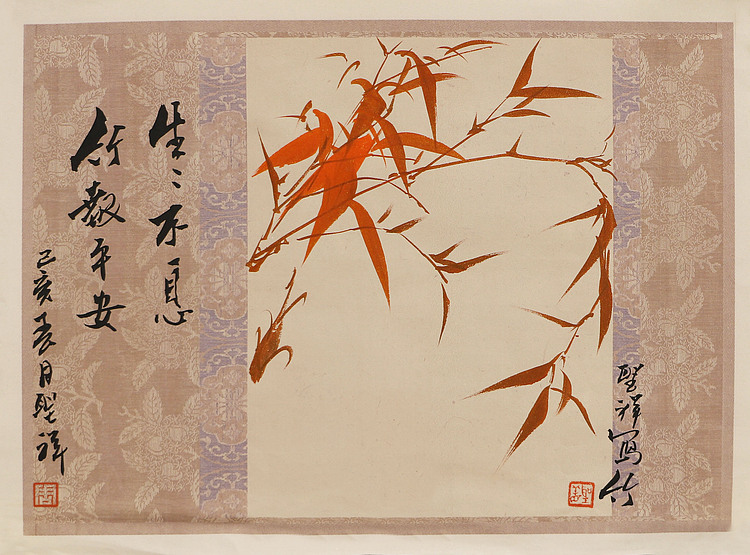 生々不息
竹報平安
己亥春月聖祥
聖祥寫竹